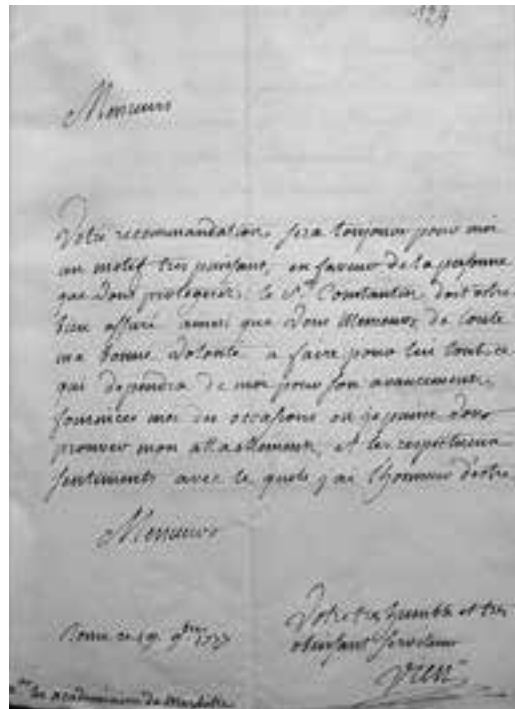 124
Messieurs
Votre recommandation, sera toujours pour moi
un motif tres puissant, en faveur de la personne
que vous protegerés. le Sr. Constantin, doit estre
bien assuré ainsi que vous Messieurs, de toute
ma bonne volonte a faire pour lui tout ce
qui dependra de moi pour son avancement.
fournices moi des occasions ou je puisse vous
prouver mon attachement, et les respectueux
sentiments avec le quels j'ai l'honneur d'estre
Messieurs
Votre tres humble et tres
obeissant serviteur
Rome ce 19 9bre
Vien
les academiciens de Marseille